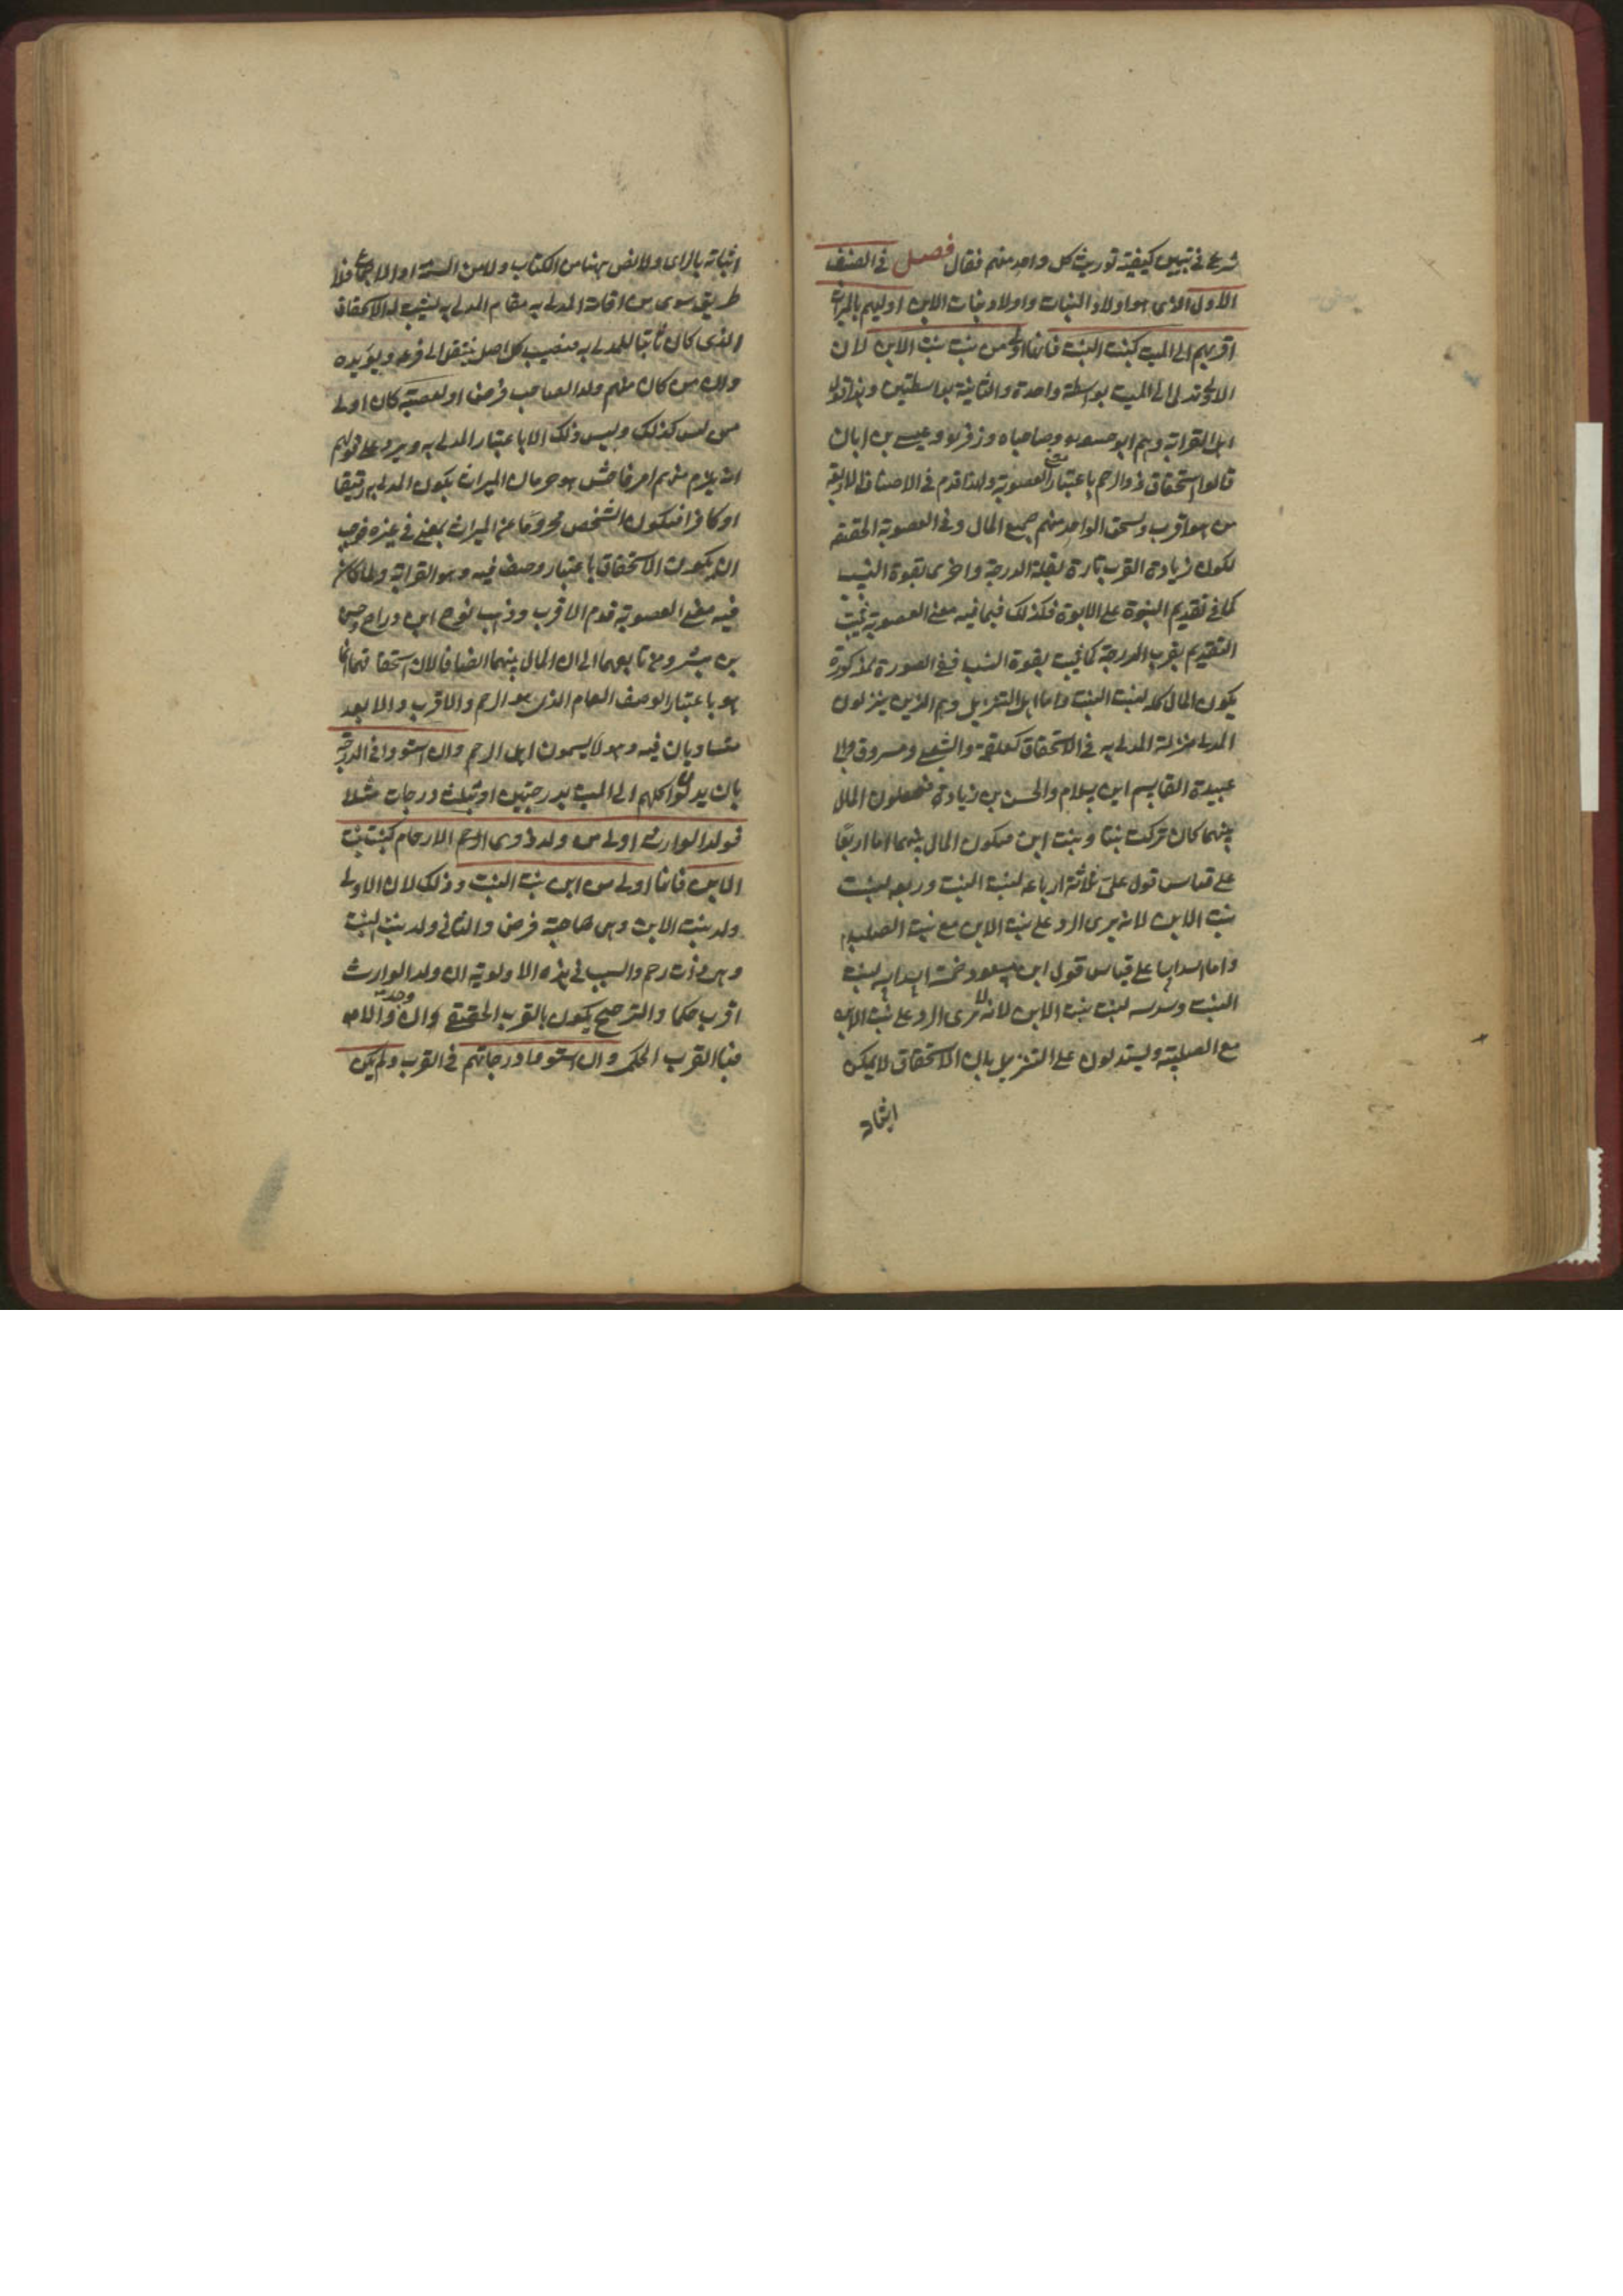 شرع في تبيين كيفية توريث كل واحد منهم فقال فصل في الصنف
الاول الذى هو اولاد البنات واولاد بنات الابن اوليهم بالميراث
اقربهم الى الميت كبنت البنت فانها اولى من بنت بنت الابن لان
الاولى تدلى الى الميت بواسطة واحدة والثانية بواسطتين وهذا قول
اهل القرابة وهم ابو حنيفة وصاحباه وزفر وعيسى بن ابان
قالوا استحقاق ذو الرحم باعتبار معنى العصوبة ولهذا قدم في الاصناف الاربعة
من هو اقرب ويستحق الواحد منهم جميع المال وفي العصوبة الحقيقة
لكون زيادة القرب تارة لقلة الدرجة واخرى لقوة النسب
كما في تقديم البنوة على الابوة فكذلك فيما فيه معنى العصوبة يثبت
التقديم بقرب الدرجة كما يثبت بقوة النسب ففي الصورة المذكورة
يكون المال كله لبنت البنت واما اهل التنزيل وهم الذين ينزلون
المدلى منزلة المدلى به في الاستحقاق كعلقمة والشعبي ومسروق وابى
عبيدة القاسم ابن سلام والحسن بن زيادة فيجعلون المال
بينهما كان تركت بنتا وبنت ابن فيكون المال بينهما اما ارباعًا
على قياس قول على ثلاثة ارباعه لبنت البنت وربعه لبنت
بنت الابن لانه يرى الرد على بنت الابن مع بنت الصلبية
واما اسداسا على قياس قول ابن مسعود خمسة اسداسه لبنت
البنت وسدسه لبنت بنت الابن لانه لا يرى الرد على بنت الابن
مع الصلبية ويستدلون على التنزيل بان الاستحقاق لا يمكن
اثباته
اثباته بالراى ولا نص ههنا من الكتاب ولا من السنة او الاجماع فلا
طريق سوى من اقامة المدلى به مقام المدلى به ليثبت له الاستحقاق
الذى كان ثابتا للمدلى به فنصيب كل اصل ينتقل الى فرعه ويؤيده
وان من كان منهم ولد الصاحب فرض او لعصبة كان اولى
من ليس كذلك وليس ذلك الا باعتبار المدلى به ويرد على قولهم
انه يلزم منهم امر فاحش هو حرمان الميراث بكون المدلى به رقيقا
او كافرا فيكون الشخص محرومًا عن الميراث بمعنى في غيره فوجب
ان يكون الاستحقاق باعتبار وصف فيه وهو القرابة ولما كان
فيه معنى العصوبة قدم الاقرب وذهب نوح ابن دراج وحبيش
بن بشر ومن تابعهما الى ان المال بينهما انصافا لان استحقاقهما انما
هو باعتبار الوصف العام الذى هو الرحم والاقرب والابعد
متساويان فيه وهؤلا يسمون اهل الرحم وان استووا في الدرجة
بان يدلوا كلهم الى الميت بدرجتين او بثلث درجات مثلا
فولد الوارث اولى من ولد ذوى الرحم الارحام كبنت بنت
الابن فانها اولى من ابن بنت البنت وذلك لان الاولى
ولد بنت الابن وهى صاحبة فرض والثانى ولد بنت البنت
وهى ذات رحم والسبب في هذه الاولوية ان ولد الوارث
اقرب حكما والترجيح يكون بالقرب الحقيقى ان وجد والا
فبا القرب الحكمى وان استوها درجاتهم في القرب ولم يكن